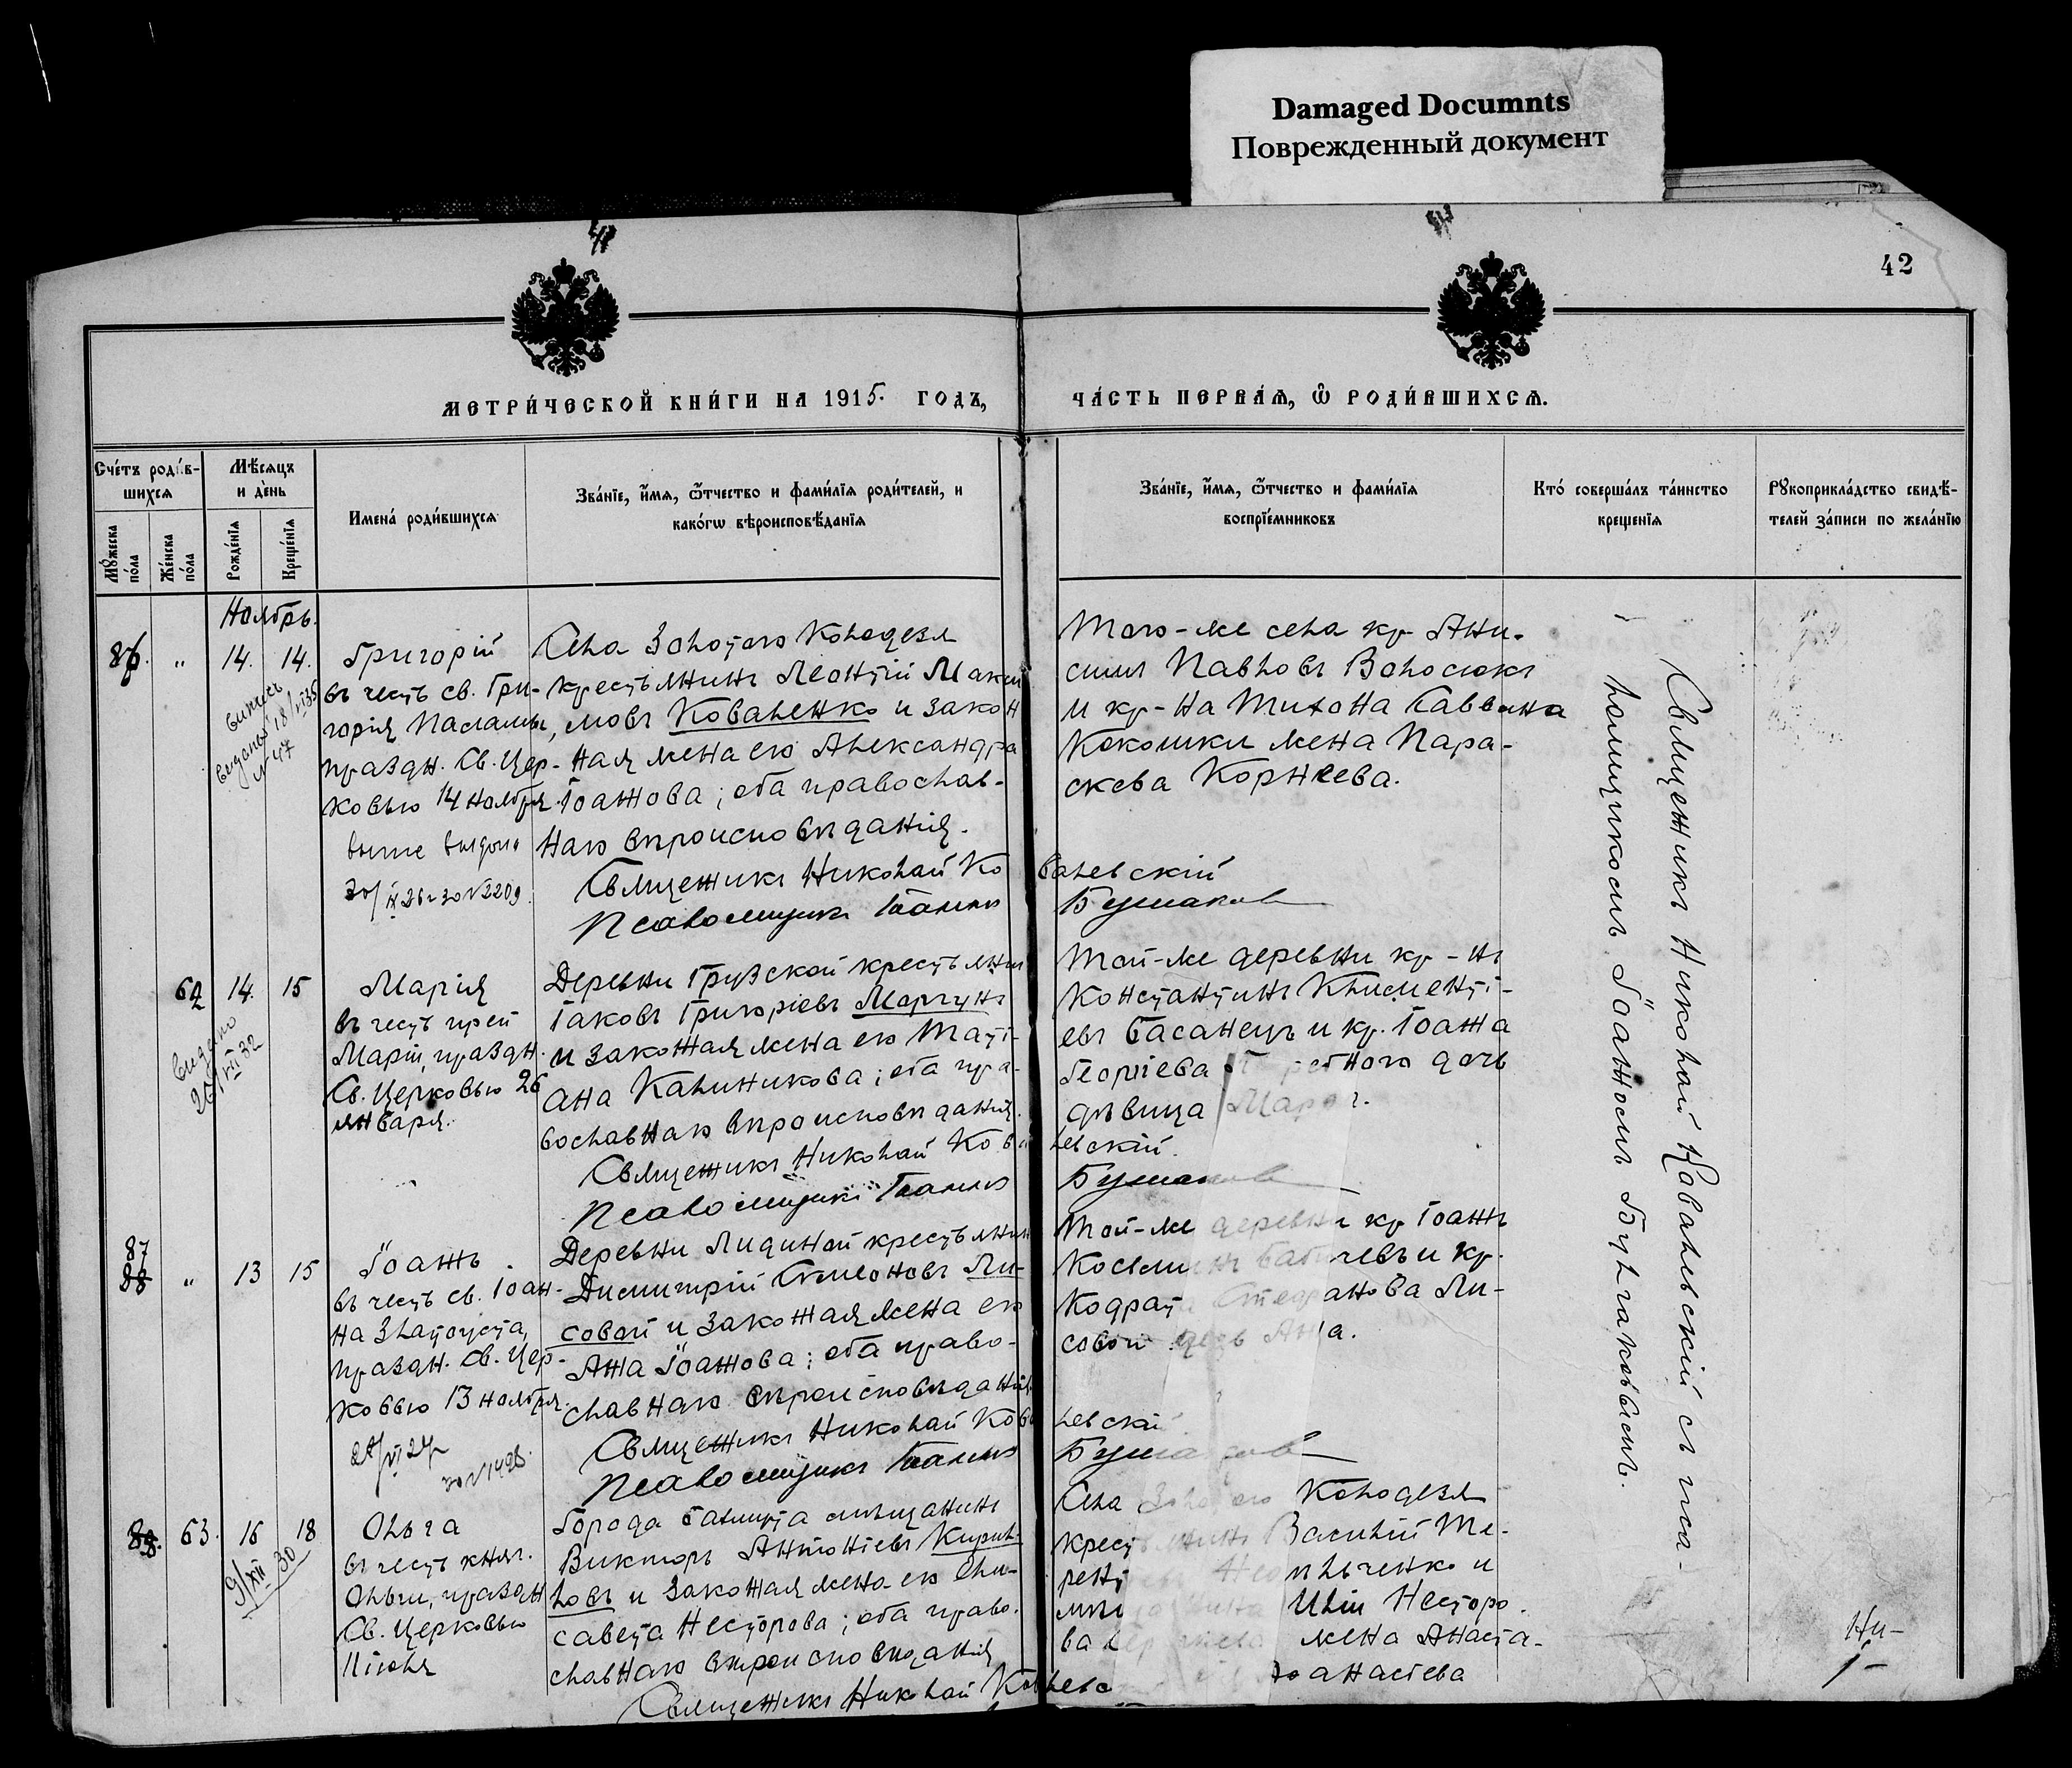 Damaged Documnts
Поврежденный документ
42
МЕТРИ́ЧЕСКОЙ КНИ́ГИ НА 1915. ГОДЪ,
ЧА́СТЬ ПЕРВАЯ, Ѡ РОДИ́ВШИХСЯ.
Сче́тъ роди́в-
шихся
Мѣ́сяцъ
и де́нь
Му́жеска
по́ла
Же́нска
по́ла
Рожде́нїя
Креще́нїя
Имена́ роди́вшихся
Зва́нїе, и́мя, ѻ҆́тчество и фами́лїя роди́телей, и
како́гѡ вѣроисповѣ́данїя
Зва́нїе, и́мя, ѻ҆́тчество и фами́лїя
воспрїе́мниковъ
Кто́ соверша́лъ та́инство
креще́нїя
Рꙋкоприкла́дство свидѣ́-
телей за́писи по жела́нїю
Ноябрь.
86. " 14. 14.
Григорій
въ честь св. Гри-
горія Паламы,
праздн. Св. Цер-
ковью 14 ноября.
Села Золотого Колодезя
крестьянинъ Леонтій Макси
мовъ Коваленко и закон
ная жена его Александра
Іоаннова; оба православ-
наго вѣроисповѣданія.
Священникъ Николай Ко
валевскій
Псаломщикъ Іоаннъ
Бушаков
Того-же села кр. Ани-
симъ Павловъ Волосюкъ
и кр-на Тихона Саввина
Кокошки жена Пара-
скева Корнѣева.
62 14. 15
Марія
въ честь преп
Маріи, праздн.
Св. Церковью 26
января.
Видано
26/XII 32
Деревни Грузской крестьянин
Іаковъ Григоріевъ Моргунъ
и законная жена его Тати-
ана Калиникова; оба пра-
вославнаго вѣроисповѣданія.
Священникъ Николай Кова
левскій.
Псаломщикъ Іоаннъ
Бушаков
Той-же деревни кр-нъ
Константинъ Климентi-
евъ Басанецъ и кр. Іоанна
Георгіева
дочь
дѣвица
87
88 " 13 15
Іоаннъ
въ честь св. Іоан-
на Златоуста,
праздн. Св. Цер-
ковью 13 ноября.
Деревни Лидиной крестьянин
Димитрій Симеоновъ Ли-
совой и законная жена его
Анна Іоаннова; оба право-
славнаго вѣроисповѣданія
Священникъ Николай Кова
левскій
Псаломщикъ Іоаннъ
Той-же деревни кр Іоаннъ
и кр.
Стефанова Ли-
сового дочь Анна.
63. 16 18
9/XII 30
Ольга
въ честь княг.
Ольги, праздн
Св. Церковью
11 іюля
Города Бахмута мѣщанинъ
Викторъ Антоніевъ Кирил-
ловъ и законная жена его Ели-
савета Несторова; оба право-
славнаго вѣроисповѣданія
Священникъ Николай Ковалевс
Села Золотого Колодезя
крестьянинъ Василій Те-
и
Иліи Несторо-
ва жена Анаста-
Священникъ Николай Ковалевскій съ пса-
ломщикомъ Іоанномъ Бушаковымъ.